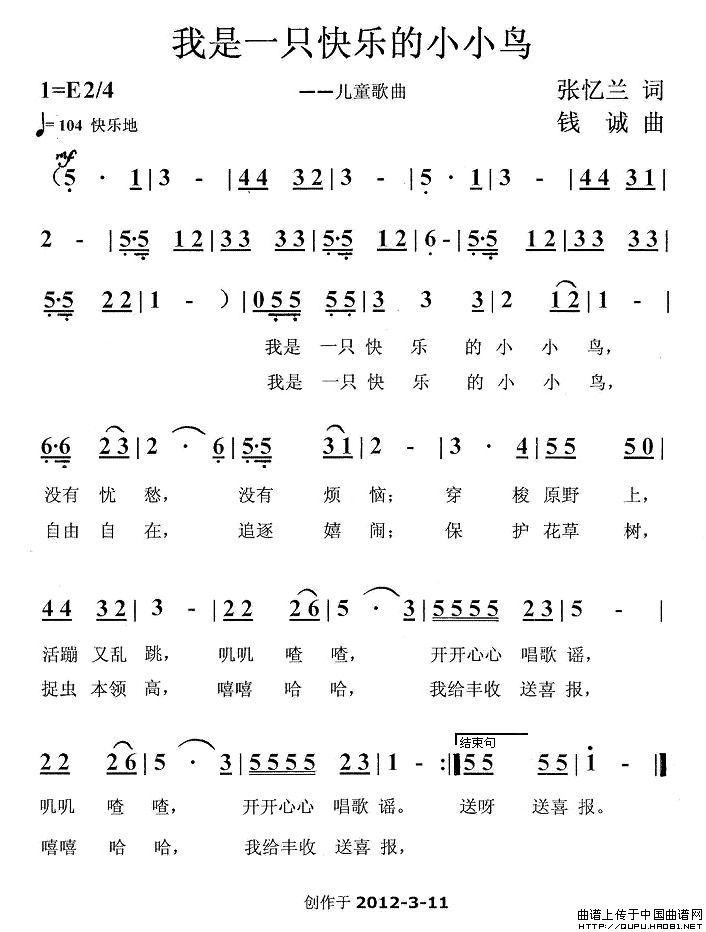 我是一只快乐的小小鸟
1=E2/4 ——儿童歌曲 张忆兰 词
♩= 104 快乐地 钱 诚 曲
mf
(5 · 1|3 - |44 32|3 - |5 · 1|3 - |44 31|
2 - |5·5 12|33 33|5·5 12|6 - |5·5 12|33 33|
5·5 22|1 - )|055 55|3 3 3|2 12|1 - |
我是 一只 快 乐 的 小 小 鸟,
我是 一只 快 乐 的 小 小 鸟,
6·6 23|2 · 6|5·5 31|2 - |3 · 4|55 50|
没有 忧 愁, 没有 烦 恼; 穿 梭 原野 上,
自由 自 在, 追逐 嬉 闹; 保 护 花草 树,
44 32|3 - |22 26|5 · 3|5555 23|5 - |
活蹦 又乱 跳, 叽叽 喳 喳, 开开心心 唱歌 谣,
捉虫 本领 高, 嘻嘻 哈 哈, 我给丰收 送喜 报,
结束句
22 26|5 · 3|5555 23|1 - :‖55 55|1 - ‖
叽叽 喳 喳, 开开心心 唱歌 谣。 送呀 送喜 报。
嘻嘻 哈 哈, 我给丰收 送喜 报,
创作于 2012-3-11
曲谱上传于中国曲谱网
HTTP://QUPU.HAO81.NET